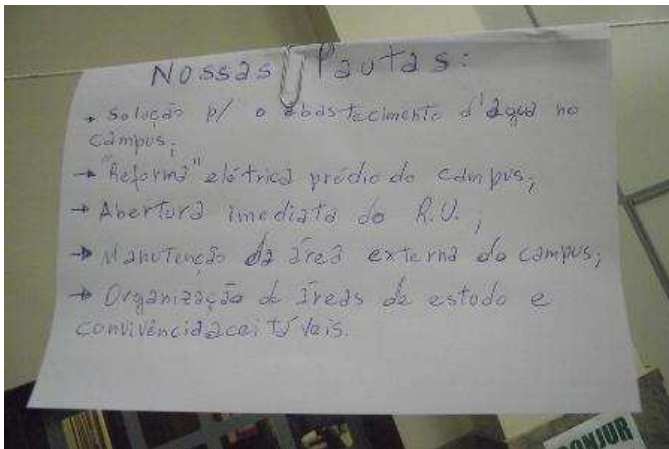 Nossas Pautas:
→ Solução p/ o abastecimento d'água no
câmpus;
→ "Reforma" elétrica prédio do campus;
→ Abertura imediata do R.U.;
→ Manutenção da área externa do campus;
→ Organização de áreas de estudo e
convivência aceitáveis.
CONJUR